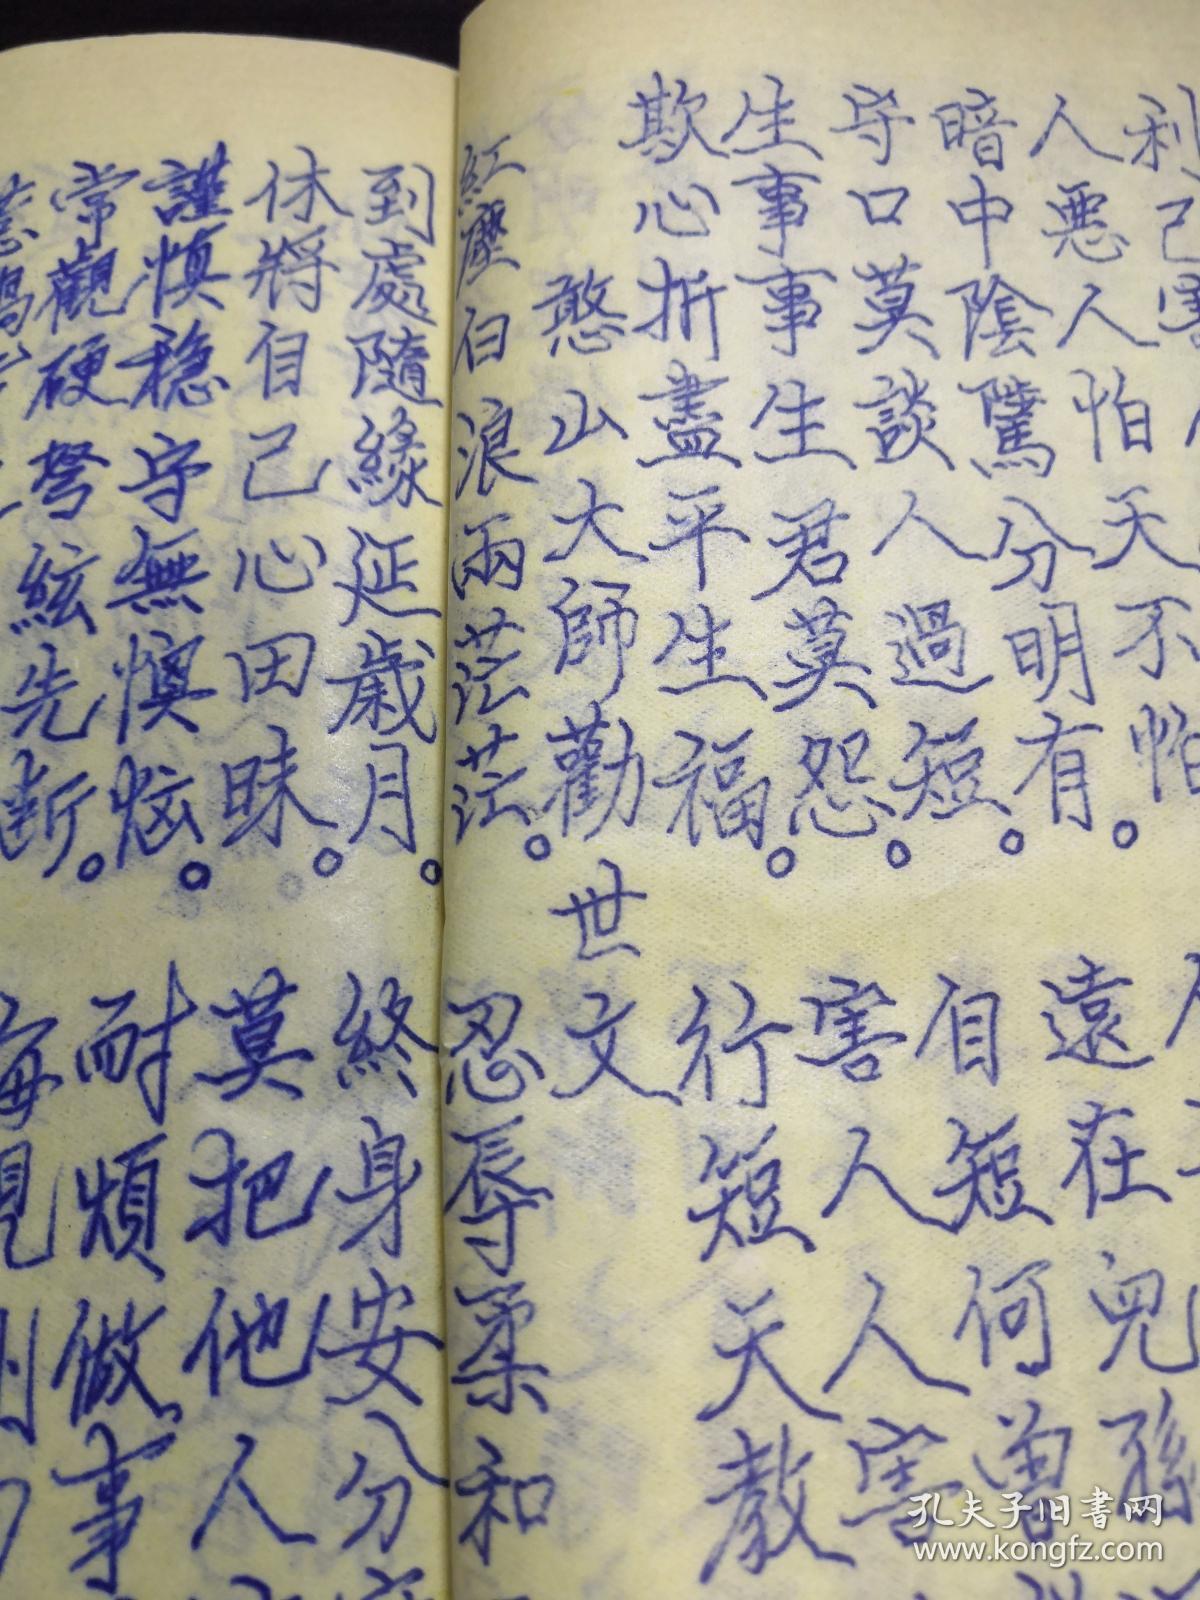 利己害
人惡人怕天不怕
遠在兒孫
暗中陰騭分明有。
自短何曾
守口莫談人過短。
害人人害
生事事生君莫怨。
行短天教
欺心折盡平生福。
憨山大師勸世文
紅塵白浪兩茫茫。忍辱柔和
到處隨緣延歲月。終身安分
休將自己心田昧。莫把他人
謹慎穩守無懊惱。耐煩做事
常觀硬弩絃先斷。
孔夫子旧书网
www.kongfz.com